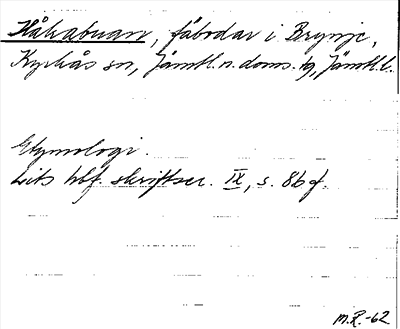 Hålvabuan, fäbodar i Brynje,
Kyrkås sn, Jämtl. n. doms. tg, Jämtl. l.
Etymologi
Lits hbf. skriftser. IX, s. 86 f.
M.R.-62